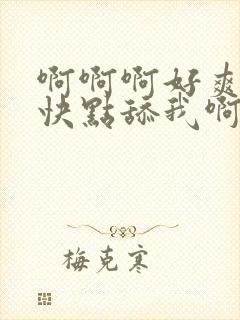 啊啊啊好爽
快點舔我啊
梅克寒